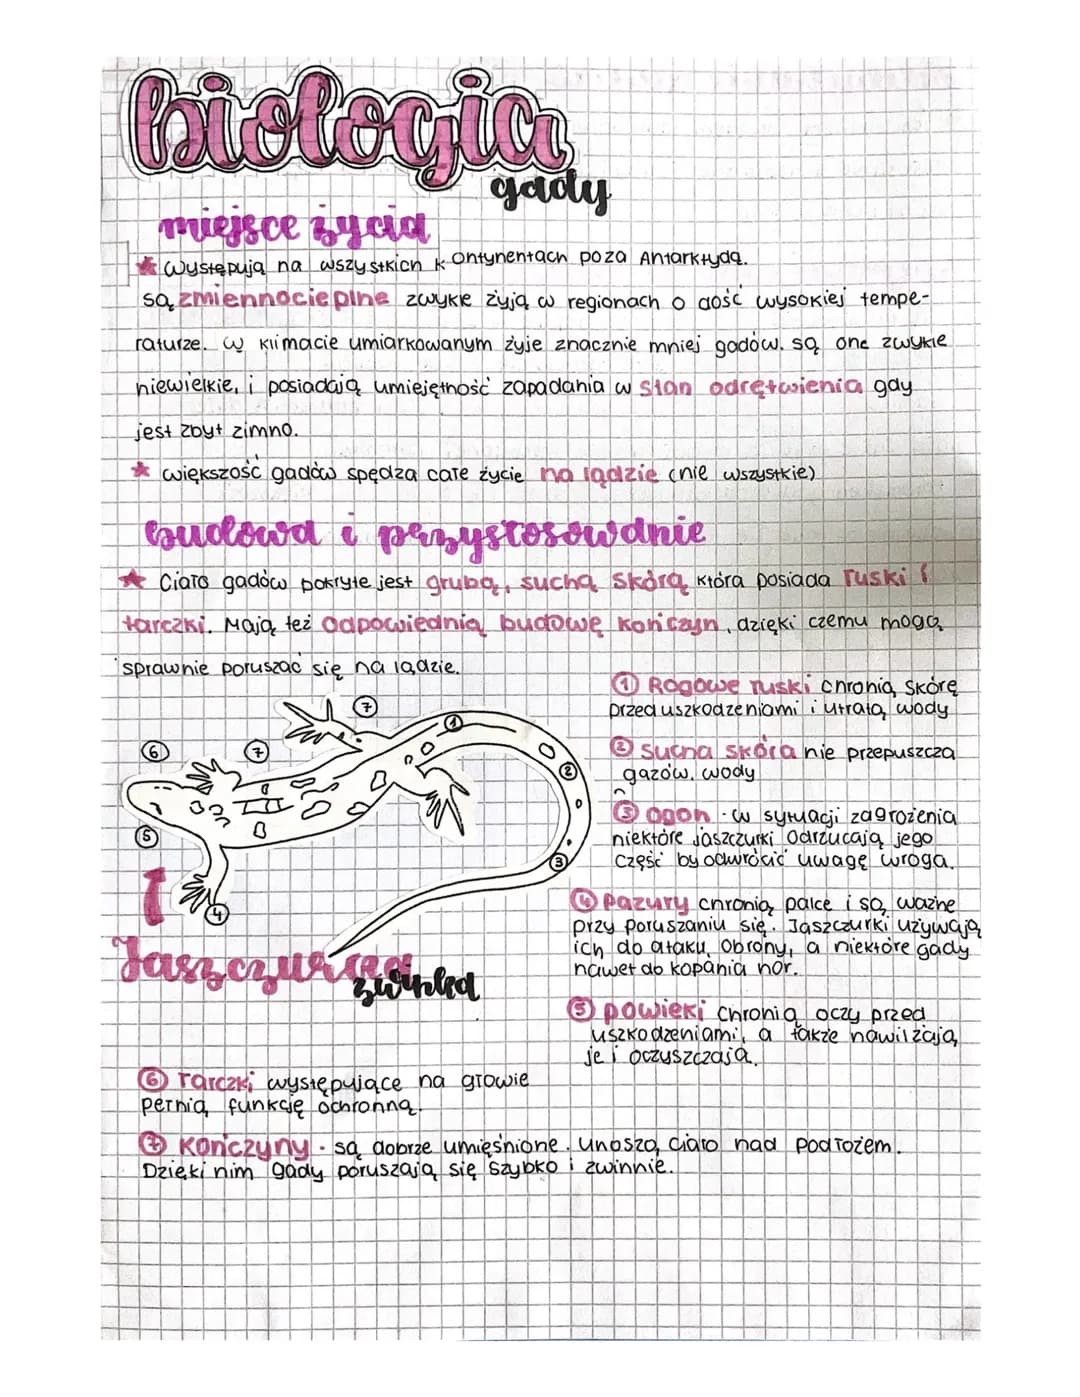 biologia
gady
miejsce życia
★ Występują na wszystkich kontynentach poza Antarktydą.
są zmiennocieplne zwykle żyją w regionach o dość wysokiej tempe-
raturze. W klimacie umiarkowanym żyje znacznie mniej gadów. są one zwykle
niewielkie, i posiadają umiejętność zapadania w stan odrętwienia gdy
jest zbyt zimno.
★ większość gadów spędza całe życie na lądzie (nie wszystkie)
budowa i przystosowanie
★ Ciało gadów pokryte jest grubą, suchą skórą która posiada łuski i
tarczki. Mają też odpowiednią budowę kończyn, dzięki czemu mogą
sprawnie poruszać się na lądzie.
① Rogowe łuski chronią skórę
przed uszkodzeniami i utratą wody
② sucha skóra nie przepuszcza
gazów, wody
③ ogon - w sytuacji zagrożenia
niektóre jaszczurki odrzucają jego
część by odwrócić uwagę wroga.
④ pazury chronią palce i są ważne
przy poruszaniu się. Jaszczurki używają
ich do ataku, obrony, a niektóre gady
nawet do kopania nor.
⑤ powieki chronią oczy przed
uszkodzeniami, a także nawilżają
je i oczyszczają.
7
1
6
7
2
5
3
4
Jaszczurka
zwinka
⑥ Tarczki występujące na głowie
pełnią funkcję ochronną.
⑦ Kończyny - są dobrze umięśnione. Unoszą ciało nad podłożem.
Dzięki nim gady poruszają się szybko i zwinnie.